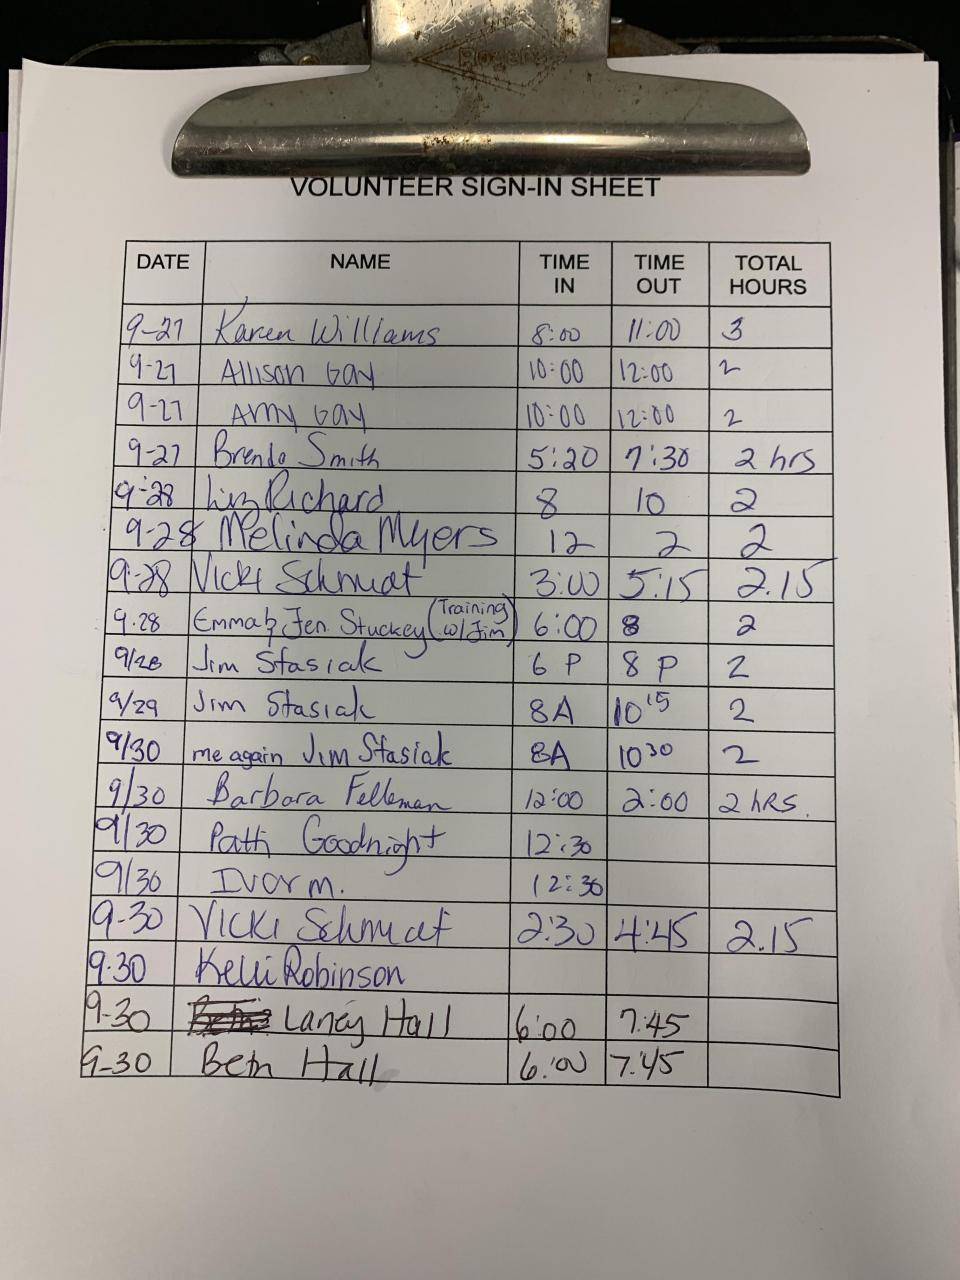 Rogers
VOLUNTEER SIGN-IN SHEET
DATE NAME TIME IN TIME OUT TOTAL HOURS
9-27 Karen Williams 8:00 11:00 3
9-27 Allison Gay 10:00 12:00 2
9-27 Amy Gay 10:00 12:00 2
9-27 Brenda Smith 5:20 7:30 2 hrs
9-28 Liz Richard 8 10 2
9-28 Melinda Myers 12 2 2
9-28 Vicki Schmidt 3:00 5:15 2.15
9.28 Emma & Jen Stuckey (Training w/ Jim) 6:00 8 2
9/28 Jim Stasiak 6 P 8 P 2
9/29 Jim Stasiak 8A 10 15 2
9/30 me again Jim Stasiak 8A 10 30 2
9/30 Barbara Felleman 12:00 2:00 2 HRS.
9/30 Patti Goodnight 12:30
9/30 Ivor m. 12:30
9-30 Vicki Schmidt 2:30 4:45 2.15
9.30 Kelli Robinson
9-30 Laney Hall 6:00 7:45
9-30 Beth Hall 6:00 7:45